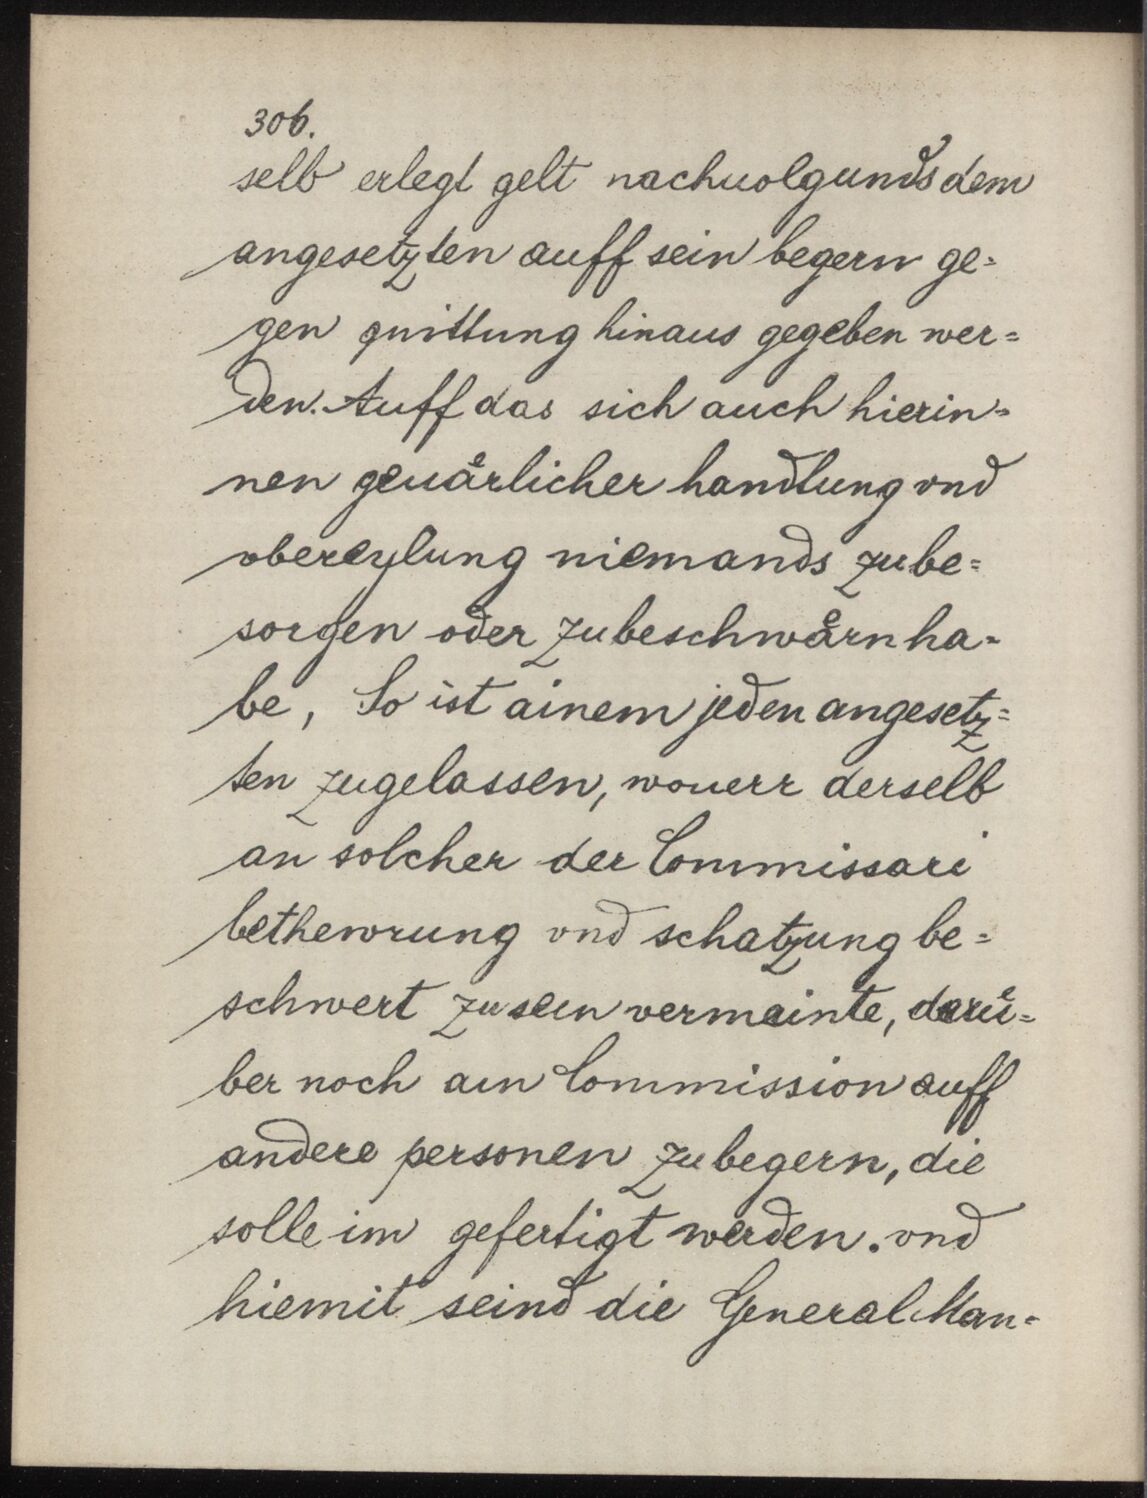 306.
selb erlegt gelt nachuolgunds dem
angesetzten auff sein begern ge=
gen quittung hinaus gegeben wer=
den. Auff das sich auch hierin=
nen geuaͤrlicher handlung vnd
vbereylung niemands zube=
sorgen oder zubeschwaͤrn ha=
be, So ist ainem jeden angesetz=
ten zugelassen, wouerr derselb
an solcher der Commissari
bethewrung vnd schatzung be=
schwert zu sein vermainte, daruͤ=
ber noch ain Commission auff
andere personen zubegern, die
solle im gefertigt werden. vnd
hiemit seind die General Man=